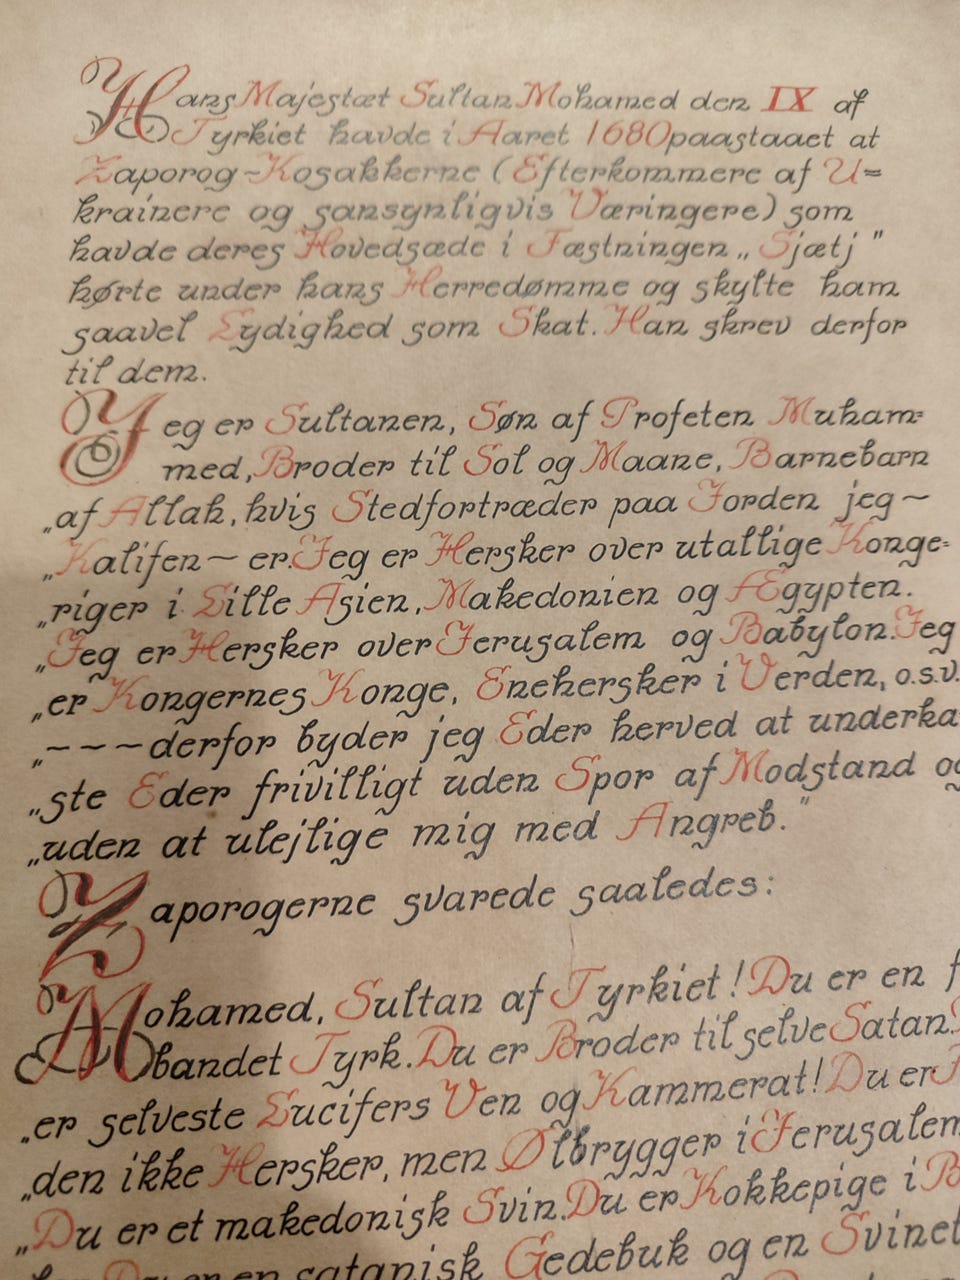 Hans Majestæt Sultan Mohamed den IX af
Tyrkiet havde i Aaret 1680 paastaaet at
Zaporog-Kosakkerne (Efterkommere af U=
krainere og sansynligvis Væringere) som
havde deres Hovedsæde i Fæstningen „Sjætj"
hørte under hans Herredømme og skylte ham
saavel Lydighed som Skat. Han skrev derfor
til dem.
Jeg er Sultanen, Søn af Profeten Muham=
med, Broder til Sol og Maane, Barnebarn
„af Allah, hvis Stedfortræder paa Jorden jeg ~
„Kalifen ~ er. Jeg er Hersker over utallige Konge=
„riger i Lille Asien, Makedonien og Ægypten.
„Jeg er Hersker over Jerusalem og Babylon. Jeg
„er Kongernes Konge, Enehersker i Verden, o.s.v.
„~~~derfor byder jeg Eder herved at underka
„ste Eder frivilligt uden Spor af Modstand og
„uden at ulejlige mig med Angreb."
Zaporogerne svarede saaledes:
Mohamed, Sultan af Tyrkiet! Du er en f
bandet Tyrk. Du er Broder til selve Satan.
„er selveste Lucifers Ven og Kammerat! Du er
„den ikke Hersker, men Ølbrygger i Jerusalem
„Du er et makedonisk Svin. Du er Kokkepige i B
Du er en satanisk Gedebuk og en Svinet